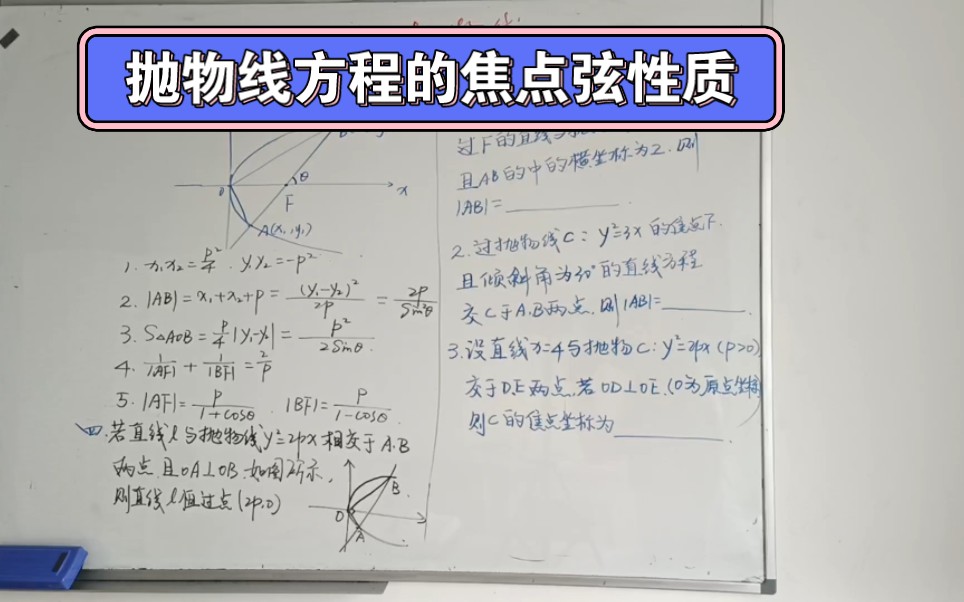 抛物线方程的焦点弦性质
θ
O
F
x
A(x₁,y₁)
1. x₁x₂=p²/4. y₁y₂=-p²
2. |AB|=x₁+x₂+p=(y₁-y₂)²/2p=2p/Sin²θ
3. S△AOB=p/4|y₁-y₂|=p²/2Sinθ.
4. 1/|AF|+1/|BF|=2/p
5. |AF|=p/1+cosθ. |BF|=p/1-cosθ.
四.若直线l与抛物线y²=2px相交于A.B
两点,且OA⊥OB.如图所示,
则直线l恒过点(2p,0)
B
O
A
过F的直线
且AB的中的横坐标为2.则
|AB|=________.
2.过抛物线C:y²=3x的焦点F.
且倾斜角为30°的直线方程
交C于A.B两点.则|AB|=________.
3.设直线x=4与抛物C:y²=2px(p>0)
交于D.E两点,若OD⊥OE.(O为原点坐标
则C的焦点坐标为________.